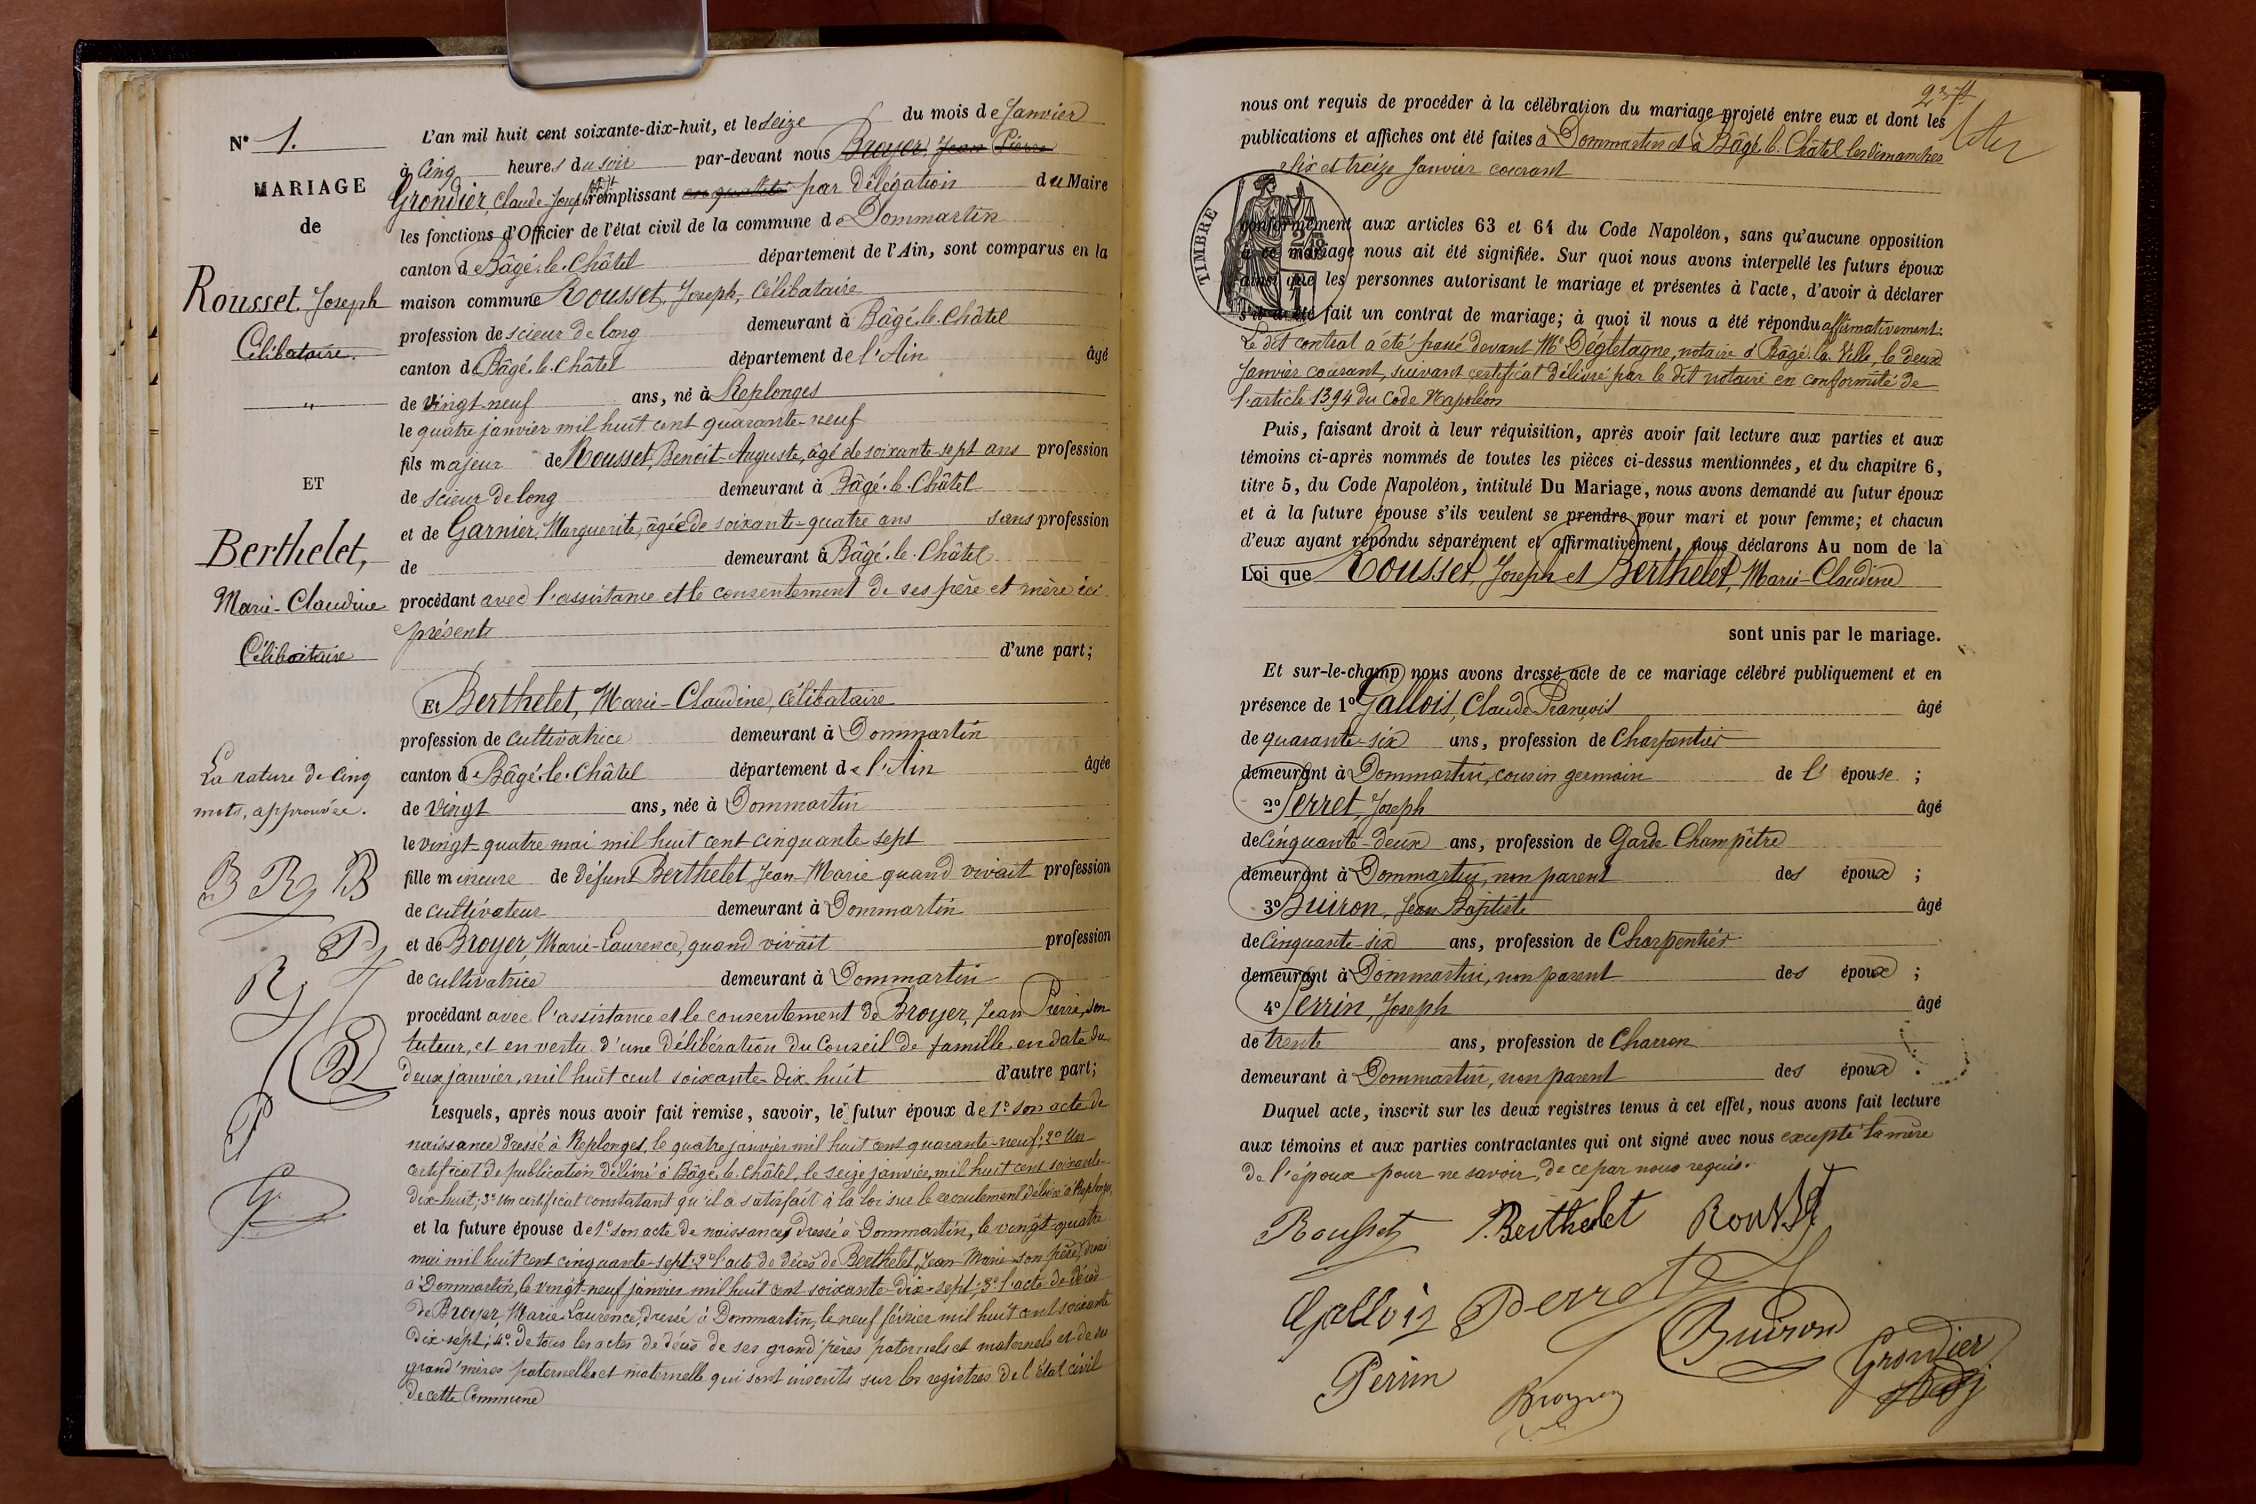 N° 1.
MARIAGE
de
Rousset, Joseph
Célibataire.
"
ET
Berthelet,
Marie-Claudine
Célibataire
La rature de cinq
mots, approuvée.
B R J B
L'an mil huit cent soixante-dix-huit, et le seize du mois de Janvier
à Cinq heures du soir par-devant nous Broyer, Jean Pierre
Grondier, Claude-Joseph adjt remplissant en qualité par délégation du Maire
les fonctions d'Officier de l'état civil de la commune de Dommartin
canton de Bâgé-le-Châtel département de l'Ain, sont comparus en la
maison commune Rousset, Joseph, Célibataire
profession de scieur de long demeurant à Bâgé-le-Châtel
canton de Bâgé-le-Châtel département de l'Ain âgé
de Vingt-neuf ans, né à Replonges
le quatre janvier mil huit cent quarante-neuf
fils majeur de Rousset, Benoit-Auguste, âgé de soixante-sept ans profession
de scieur de long demeurant à Bâgé-le-Châtel
et de Garnier, Marguerite, âgée de soixante-quatre ans sans profession
de demeurant à Bâgé-le-Châtel
procédant avec l'assistance et le consentement de ses père et mère ici
présents
d'une part;
Et Berthelet, Marie-Claudine, Célibataire
profession de cultivatrice demeurant à Dommartin
canton de Bâgé-le-Châtel département de l'Ain âgée
de Vingt ans, née à Dommartin
le vingt-quatre mai mil huit cent cinquante sept
fille mineure de défunt Berthelet Jean Marie quand vivait profession
de cultivateur demeurant à Dommartin
et de Broyer, Marie-Laurence, quand vivait profession
de cultivatrice demeurant à Dommartin
procédant avec l'assistance et le consentement de Broyer, Jean Pierre, son
tuteur, et en vertu d'une délibération du Conseil de famille en date du
deux janvier, mil huit cent soixante-dix-huit d'autre part;
Lesquels, après nous avoir fait remise, savoir, le futur époux de 1° son acte de
naissance dressé à Replonges, le quatre janvier mil huit cent quarante-neuf; 2° Un
certificat de publication délivré à Bâgé-le-Châtel, le seize janvier, mil huit cent soixante-
dix-huit; 3° Un certificat constatant qu'il a satisfait à la loi sur le recrutement délivré à Replonges,
et la future épouse de 1° son acte de naissance dressé à Dommartin, le vingt-quatre
mai mil huit cent cinquante-sept; 2° l'acte de décès de Berthelet, Jean-Marie son père, dressé
à Dommartin, le vingt-neuf janvier mil huit cent soixante-dix-sept; 3° l'acte de décès
de Broyer, Marie Laurence, dressé à Dommartin, le neuf février mil huit cent soixante
dix-sept; 4° de tous les actes de décès de ses grand'pères paternels et maternels et de ses
grand'mères paternelle et maternelle qui sont inscrits sur les registres de l'état civil
de cette Commune
nous ont requis de procéder à la célébration du mariage projeté entre eux et dont les
publications et affiches ont été faites à Dommartin et à Bâgé-le-Châtel les dimanches
six et treize Janvier courant
TIMBRE
conformément aux articles 63 et 64 du Code Napoléon, sans qu'aucune opposition
à ce mariage nous ait été signifiée. Sur quoi nous avons interpellé les futurs époux
ainsi que les personnes autorisant le mariage et présentes à l'acte, d'avoir à déclarer
s'il a été fait un contrat de mariage; à quoi il nous a été répondu affirmativement.
Le dit contrat a été passé devant Me Dégletagne, notaire à Bâgé-la-Ville, le deux
Janvier courant, suivant certificat délivré par le dit notaire en conformité de
l'article 1394 du Code Napoléon
Puis, faisant droit à leur réquisition, après avoir fait lecture aux parties et aux
témoins ci-après nommés de toutes les pièces ci-dessus mentionnées, et du chapitre 6,
titre 5, du Code Napoléon, intitulé Du Mariage, nous avons demandé au futur époux
et à la future épouse s'ils veulent se prendre pour mari et pour femme; et chacun
d'eux ayant répondu séparément et affirmativement, nous déclarons Au nom de la
Loi que Rousset, Joseph et Berthelet, Marie-Claudine
sont unis par le mariage.
Et sur-le-champ nous avons dressé acte de ce mariage célébré publiquement et en
présence de 1° Gallois, Claude-François âgé
de quarante-six ans, profession de Charpentier
demeurant à Dommartin, cousin germain de l'épouse ;
2° Perret, Joseph âgé
de Cinquante-deux ans, profession de Garde Champêtre
demeurant à Dommartin, non parent des époux ;
3° Buiron, Jean Baptiste âgé
de Cinquante-six ans, profession de Charpentier
demeurant à Dommartin, non parent des époux ;
4° Perrin, Joseph âgé
de trente ans, profession de Charron
demeurant à Dommartin, non parent des époux .
Duquel acte, inscrit sur les deux registres tenus à cet effet, nous avons fait lecture
aux témoins et aux parties contractantes qui ont signé avec nous excepté la mère
de l'époux pour ne savoir, de ce par nous requis.
Rousset Berthelet Rousset
Gallois Perret
Buiron Grondier
Perrin Broyer adj